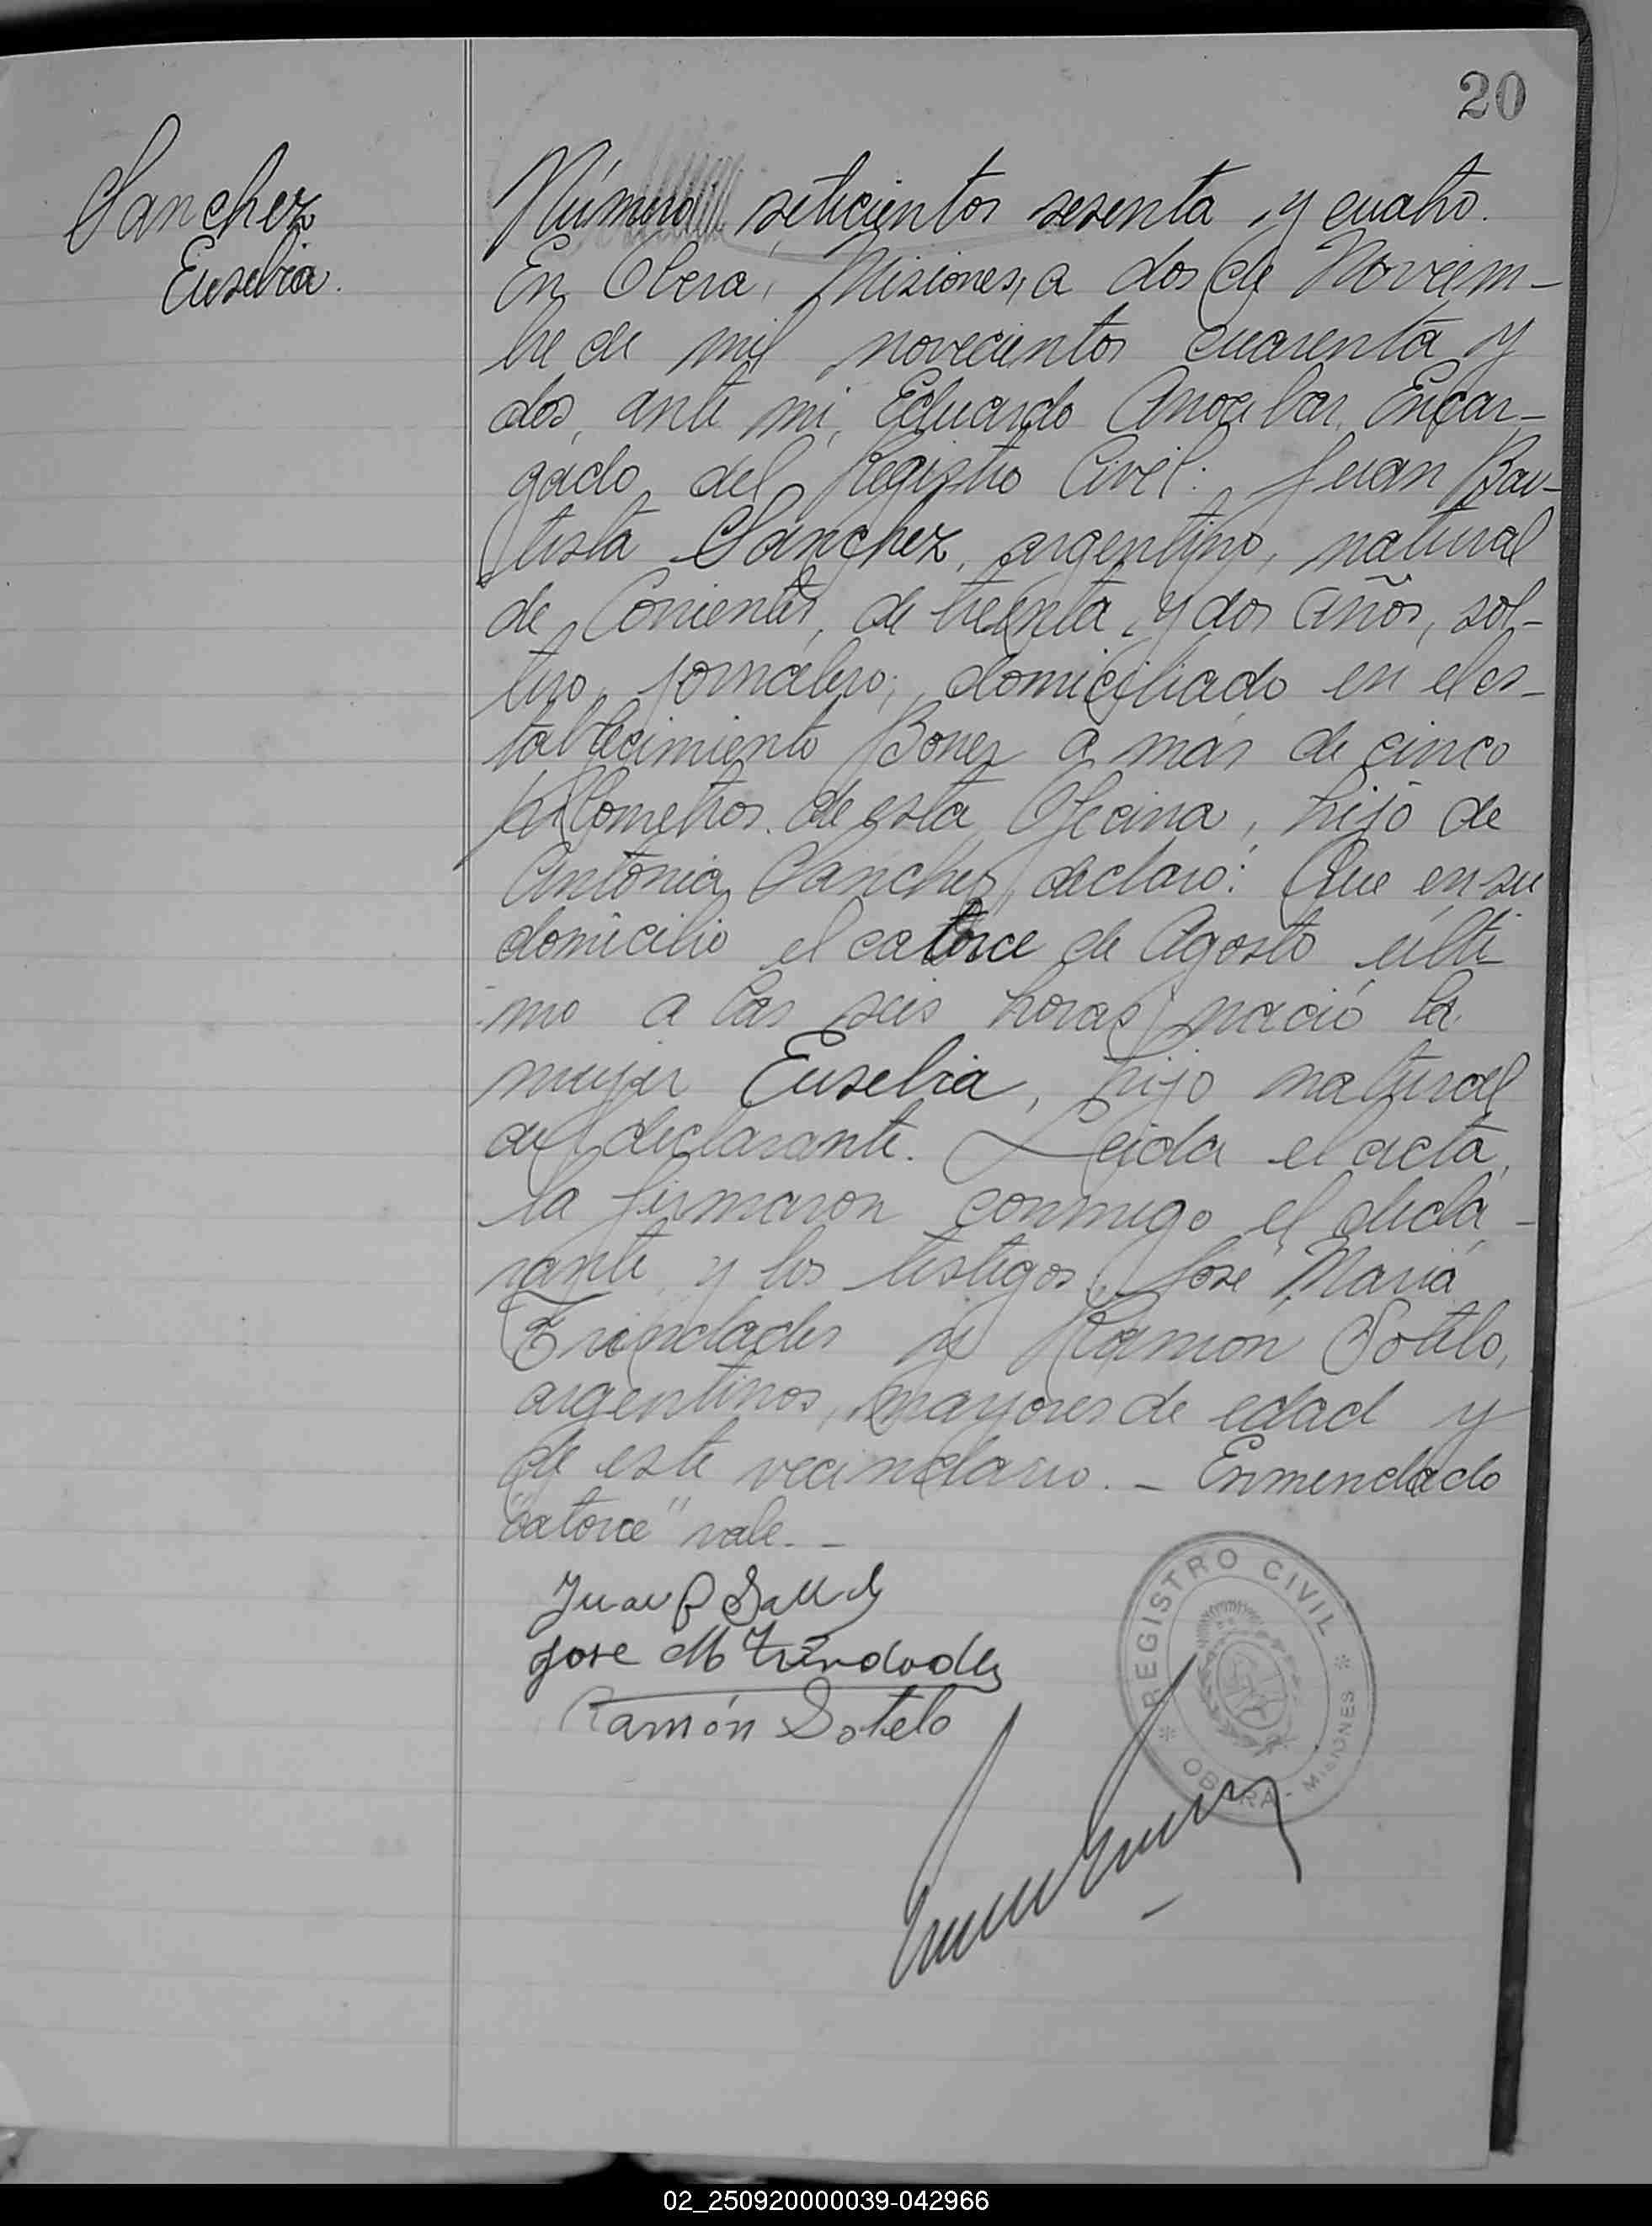 20
Sanchez
Eusebia.
Número setecientos sesenta y cuatro.
En Obera, Misiones, a dos de Noviem-
bre de mil novecientos cuarenta y
dos, ante mi, Eduardo Encar-
gado del Registro Civil: Juan Bau-
tista Sanchez, argentino, natural
de Corrientes, de treinta y dos años, sol-
tero, jornalero, domiciliado en el es-
tablecimiento Boner a mas de cinco
kilometros de esta Oficina, hijo de
Antonia Sanchez, declaró: Que en su
domicilio el catorce de Agosto últi-
mo a las seis horas nació la
mujer Eusebia, hijo natural
del declarante. Leida el acta,
la firmaron conmigo el decla-
rante y los testigos, José Maria
Trindades y Ramón Sotelo,
argentinos, mayores de edad y
de este vecindario. - Enmendado
"catorce" vale. -
Juan B
Jose M Trindades
Ramón Sotelo
REGISTRO CIVIL
OBERA - MISIONES
02_250920000039-042966